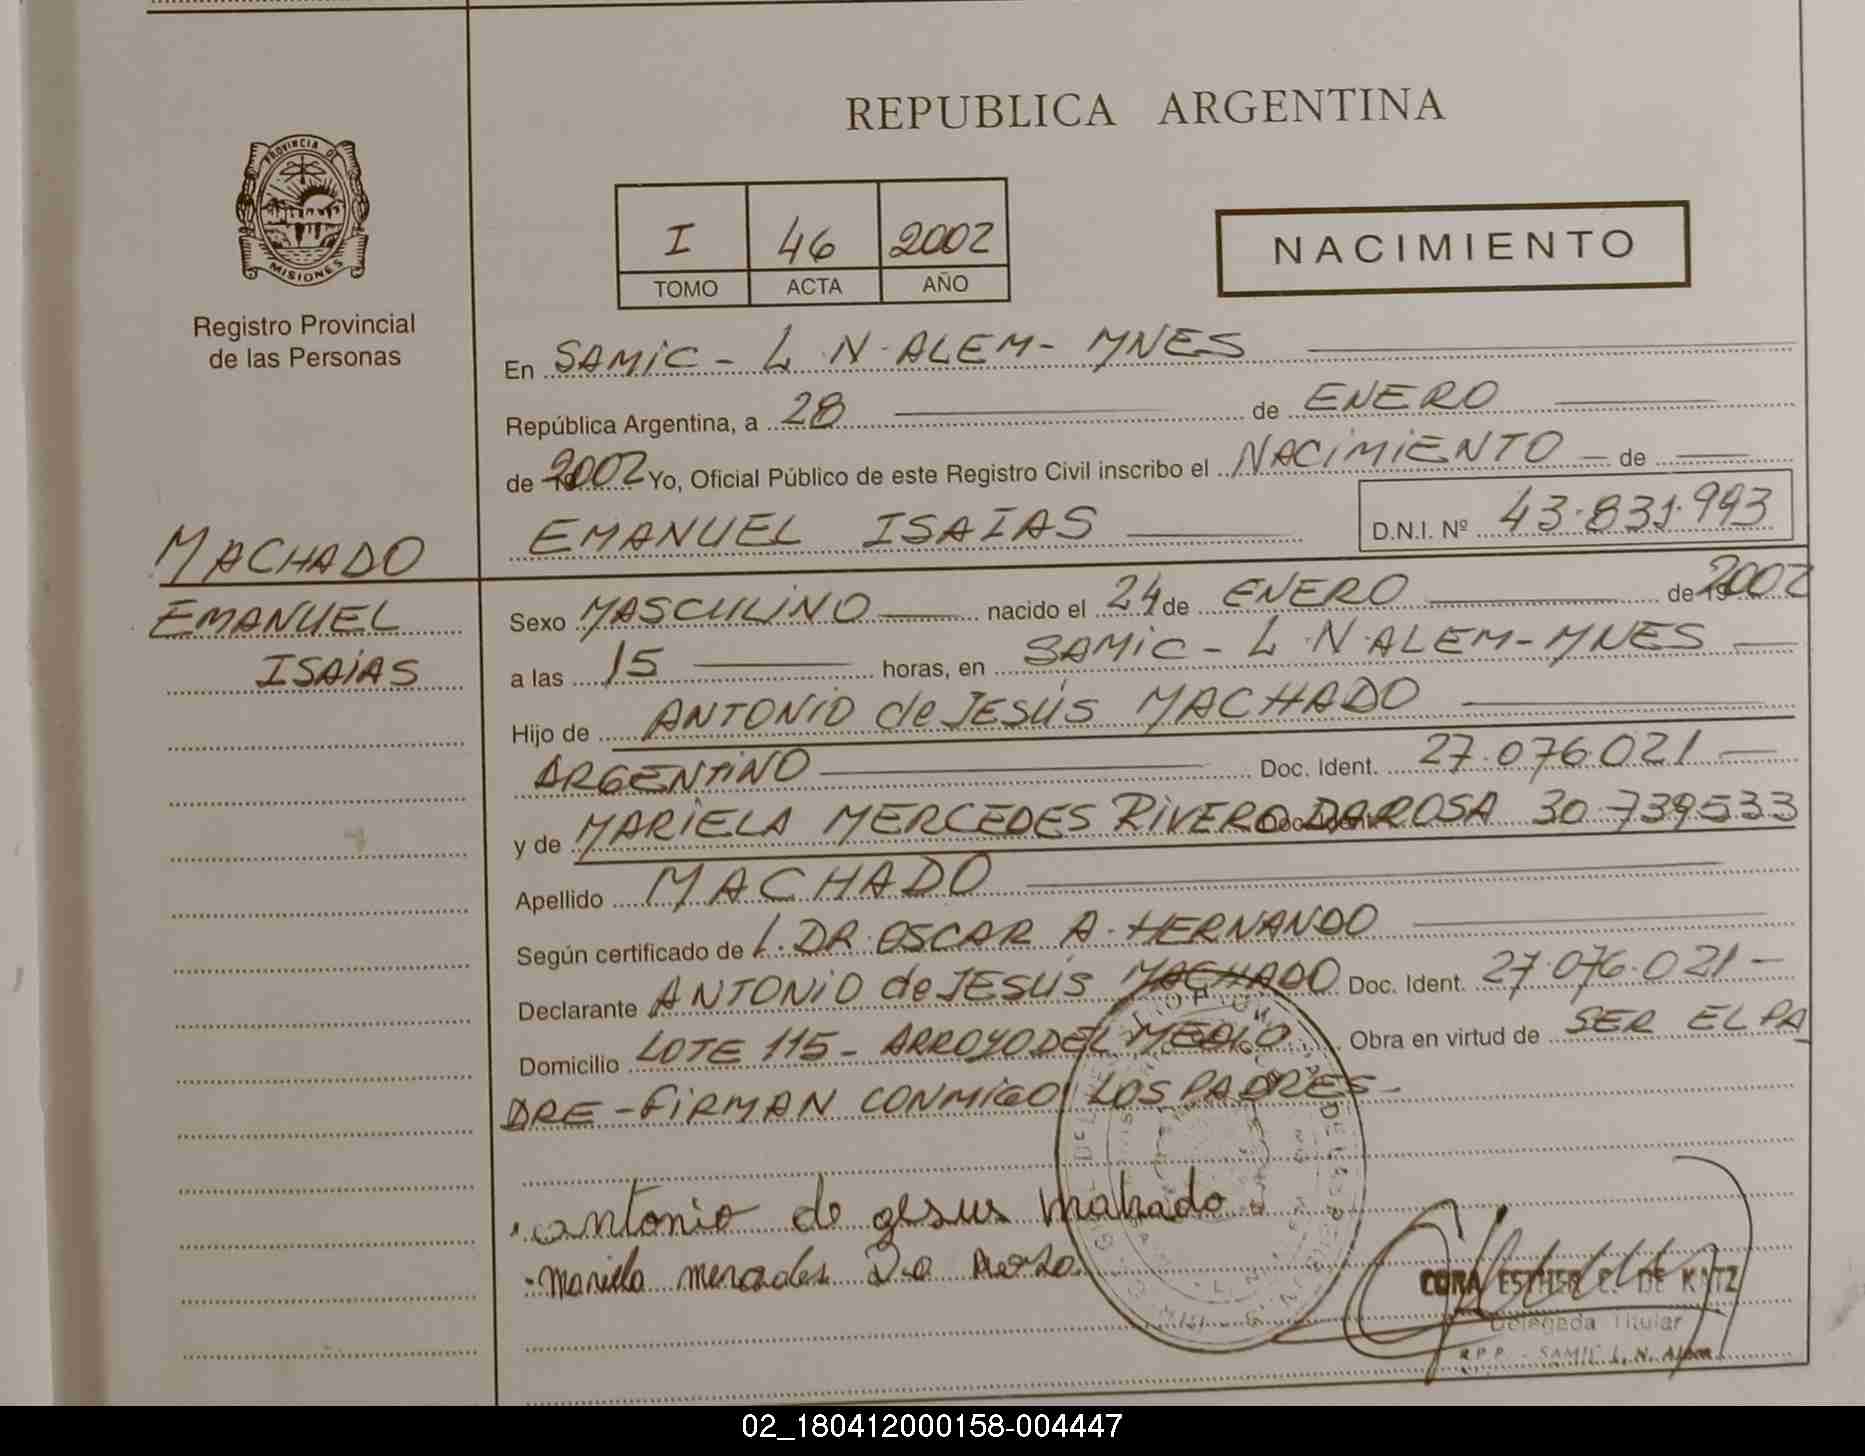 REPUBLICA ARGENTINA
PROVINCIA DE
MISIONES
Registro Provincial
de las Personas
I 46 2002
TOMO ACTA AÑO
NACIMIENTO
En SAMIC - L N. ALEM - MNES
República Argentina, a 28 de ENERO
de 2002 Yo, Oficial Público de este Registro Civil inscribo el NACIMIENTO de
EMANUEL ISAIAS D.N.I. Nº 43.831.993
MACHADO
EMANUEL
ISAIAS
Sexo MASCULINO nacido el 24 de ENERO de 2002
a las 15 horas, en SAMIC - L N. ALEM - MNES
Hijo de ANTONIO de JESÚS MACHADO
ARGENTINO Doc. Ident. 27.076.021
y de MARIELA MERCEDES RIVERO DA ROSA 30.739533
Apellido MACHADO
Según certificado de L. DR. OSCAR A. HERNANDO
Declarante ANTONIO de JESÚS MACHADO Doc. Ident. 27.076.021 -
Domicilio LOTE 115 - ARROYO DEL MEDIO Obra en virtud de SER EL PA
DRE - FIRMAN CONMIGO LOS PADRES -
antonio de gesus mahado
Mariela mercedes Da
CORA ESTHER P. DE KATZ
Delegada Titular
R.P.P. - SAMIC L. N. Alem
02_180412000158-004447